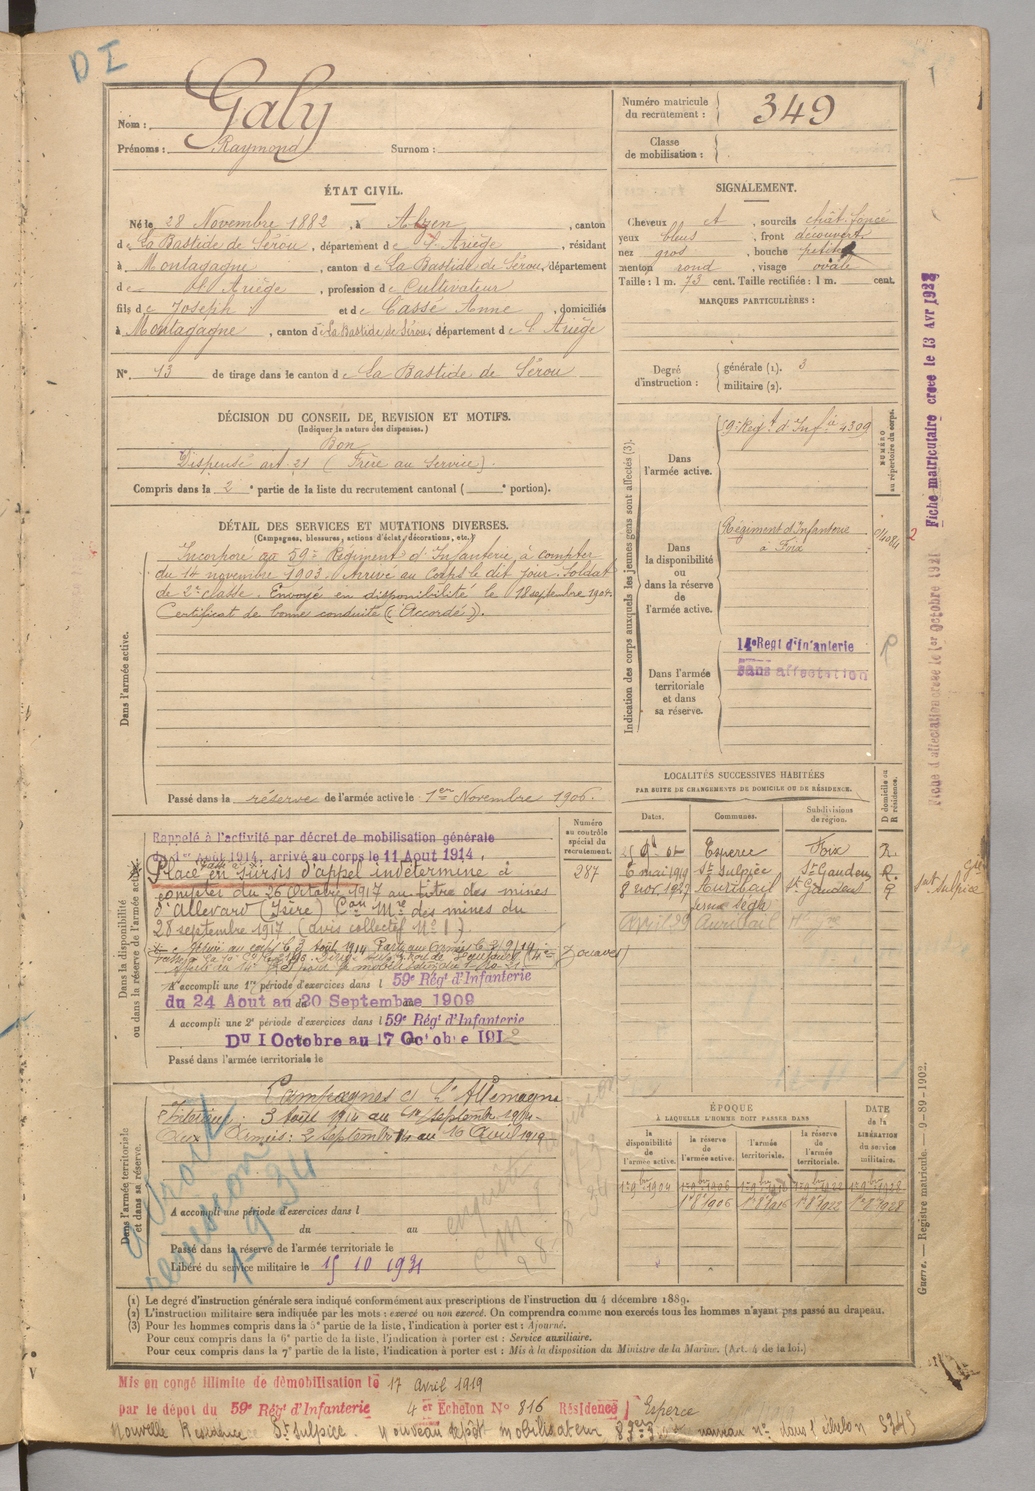 D I
Nom : Galy
Prénoms : Raymond Surnom :
Numéro matricule du recrutement : 349
Classe de mobilisation :
ÉTAT CIVIL.
Né le 28 Novembre 1882, à Alzen, canton
de La Bastide de Sérou, département de l'Ariège, résidant
à Montagagne, canton de La Bastide de Sérou, département
de l'Ariège, profession de Cultivateur
fils de Joseph et de Cassé Anne, domiciliés
à Montagagne, canton de La Bastide de Sérou, département de l'Ariège
N° 13 de tirage dans le canton de La Bastide de Sérou
SIGNALEMENT.
Cheveux ct, sourcils chât. foncé
yeux bleus, front découvert
nez gros, bouche petite
menton rond, visage ovale
Taille : 1 m. 73 cent. Taille rectifiée : 1 m. cent.
MARQUES PARTICULIÈRES :
Degré d'instruction : générale (1). 3
militaire (2).
DÉCISION DU CONSEIL DE REVISION ET MOTIFS.
(Indiquer la nature des dispenses.)
Bon
Dispensé art. 21 (Frère au Service).
Compris dans la 2e partie de la liste du recrutement cantonal ( e portion).
DÉTAIL DES SERVICES ET MUTATIONS DIVERSES.
(Campagnes, blessures, actions d'éclat, décorations, etc.)
Dans l'armée active.
Incorporé au 59e Régiment d'Infanterie, à compter
du 14 novembre 1903. Arrivé au Corps le dit jour. Soldat
de 2e classe. Envoyé en disponibilité le 18 septembre 1904.
Certificat de bonne conduite (Accordé).
Passé dans la réserve de l'armée active le 1er Novembre 1906.
Indication des corps auxquels les jeunes gens sont affectés (3).
NUMÉRO au répertoire du corps.
Dans l'armée active. 59e Régt d'Infie à 4309
Dans la disponibilité ou dans la réserve de l'armée active. Régiment d'Infanterie
à Foix
Dans l'armée territoriale et dans sa réserve. 14e Regt d'Infanterie
sans affectation
Fiche matriculaire créée le 13 Avr 1922
Fiche d'affectation créée le 1er Octobre 1921
LOCALITÉS SUCCESSIVES HABITÉES
PAR SUITE DE CHANGEMENTS DE DOMICILE OU DE RÉSIDENCE.
Dates. Communes. Subdivisions de région. D domicile ou R résidence.
Esperce Foix R.
6 mai 1919 St Sulpice St Gaudens R.
8 nov 1927 Auribail St Gaudens R
Avril 29 Auribail
Dans la disponibilité ou dans la réserve de l'armée active.
Numéro au contrôle spécial du recrutement.
287
Rappelé à l'activité par décret de mobilisation générale
du 1er Août 1914, arrivé au corps le 11 Aout 1914.
Placé en Sursis d'appel indéterminé à
compter du 26 Octobre 1917 au titre des mines
d'Allevard (Isère) Con Mle des mines du
28 septembre 1917. (avis collectif N° 1).
A accompli une 1re période d'exercices dans l 59e Régt d'Infanterie
du 24 Aout au 20 Septembre 1909
A accompli une 2e période d'exercices dans l 59e Régt d'Infanterie
DU 1 Octobre au 17 Octobre 1912
Passé dans l'armée territoriale le
Dans l'armée territoriale et dans sa réserve.
Campagnes c/ l'Allemagne
Intérieur : 3 Août 1914 au 1er Septembre 1914
Aux Armées : 2 Septembre 14 au 16 Avril 1919
A accompli une période d'exercices dans l
du au
Passé dans la réserve de l'armée territoriale le
Libéré du service militaire le 15 10 1931
ÉPOQUE
À LAQUELLE L'HOMME DOIT PASSER DANS
la disponibilité de l'armée active. la réserve de l'armée active. l'armée territoriale. la réserve de l'armée territoriale. DATE de la LIBÉRATION du service militaire.
1er 9bre 1904
1er 8bre 1906 1er 8bre 1916 1er 8bre 1922 1er 8bre 1928
(1) Le degré d'instruction générale sera indiqué conformément aux prescriptions de l'instruction du 4 décembre 1889.
(2) L'instruction militaire sera indiquée par les mots : exercé ou non exercé. On comprendra comme non exercés tous les hommes n'ayant pas passé au drapeau.
(3) Pour les hommes compris dans la 5e partie de la liste, l'indication à porter est : Ajourné.
Pour ceux compris dans la 6e partie de la liste, l'indication à porter est : Service auxiliaire.
Pour ceux compris dans la 7e partie de la liste, l'indication à porter est : Mis à la disposition du Ministre de la Marine. (Art. 4 de la loi.)
Guerre. — Registre matricule. — 9-89-1902.
Mis en congé illimité de démobilisation le 17 Avril 1919
par le dépôt du 59e Régt d'Infanterie 4er Echelon N° 816 Résidence Esperce
Nouvelle Résidence St Sulpice. Nouveau dépôt mobilisateur nouveau n° dans l'échelon 5345